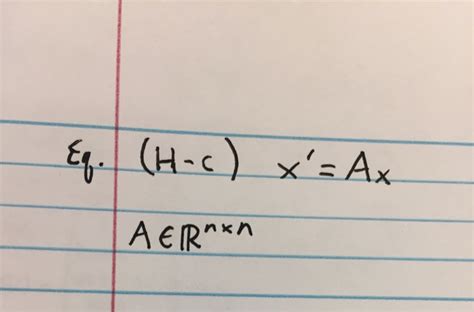 Eq. (H-c) x' = Ax
A ∈ ℝⁿˣⁿ